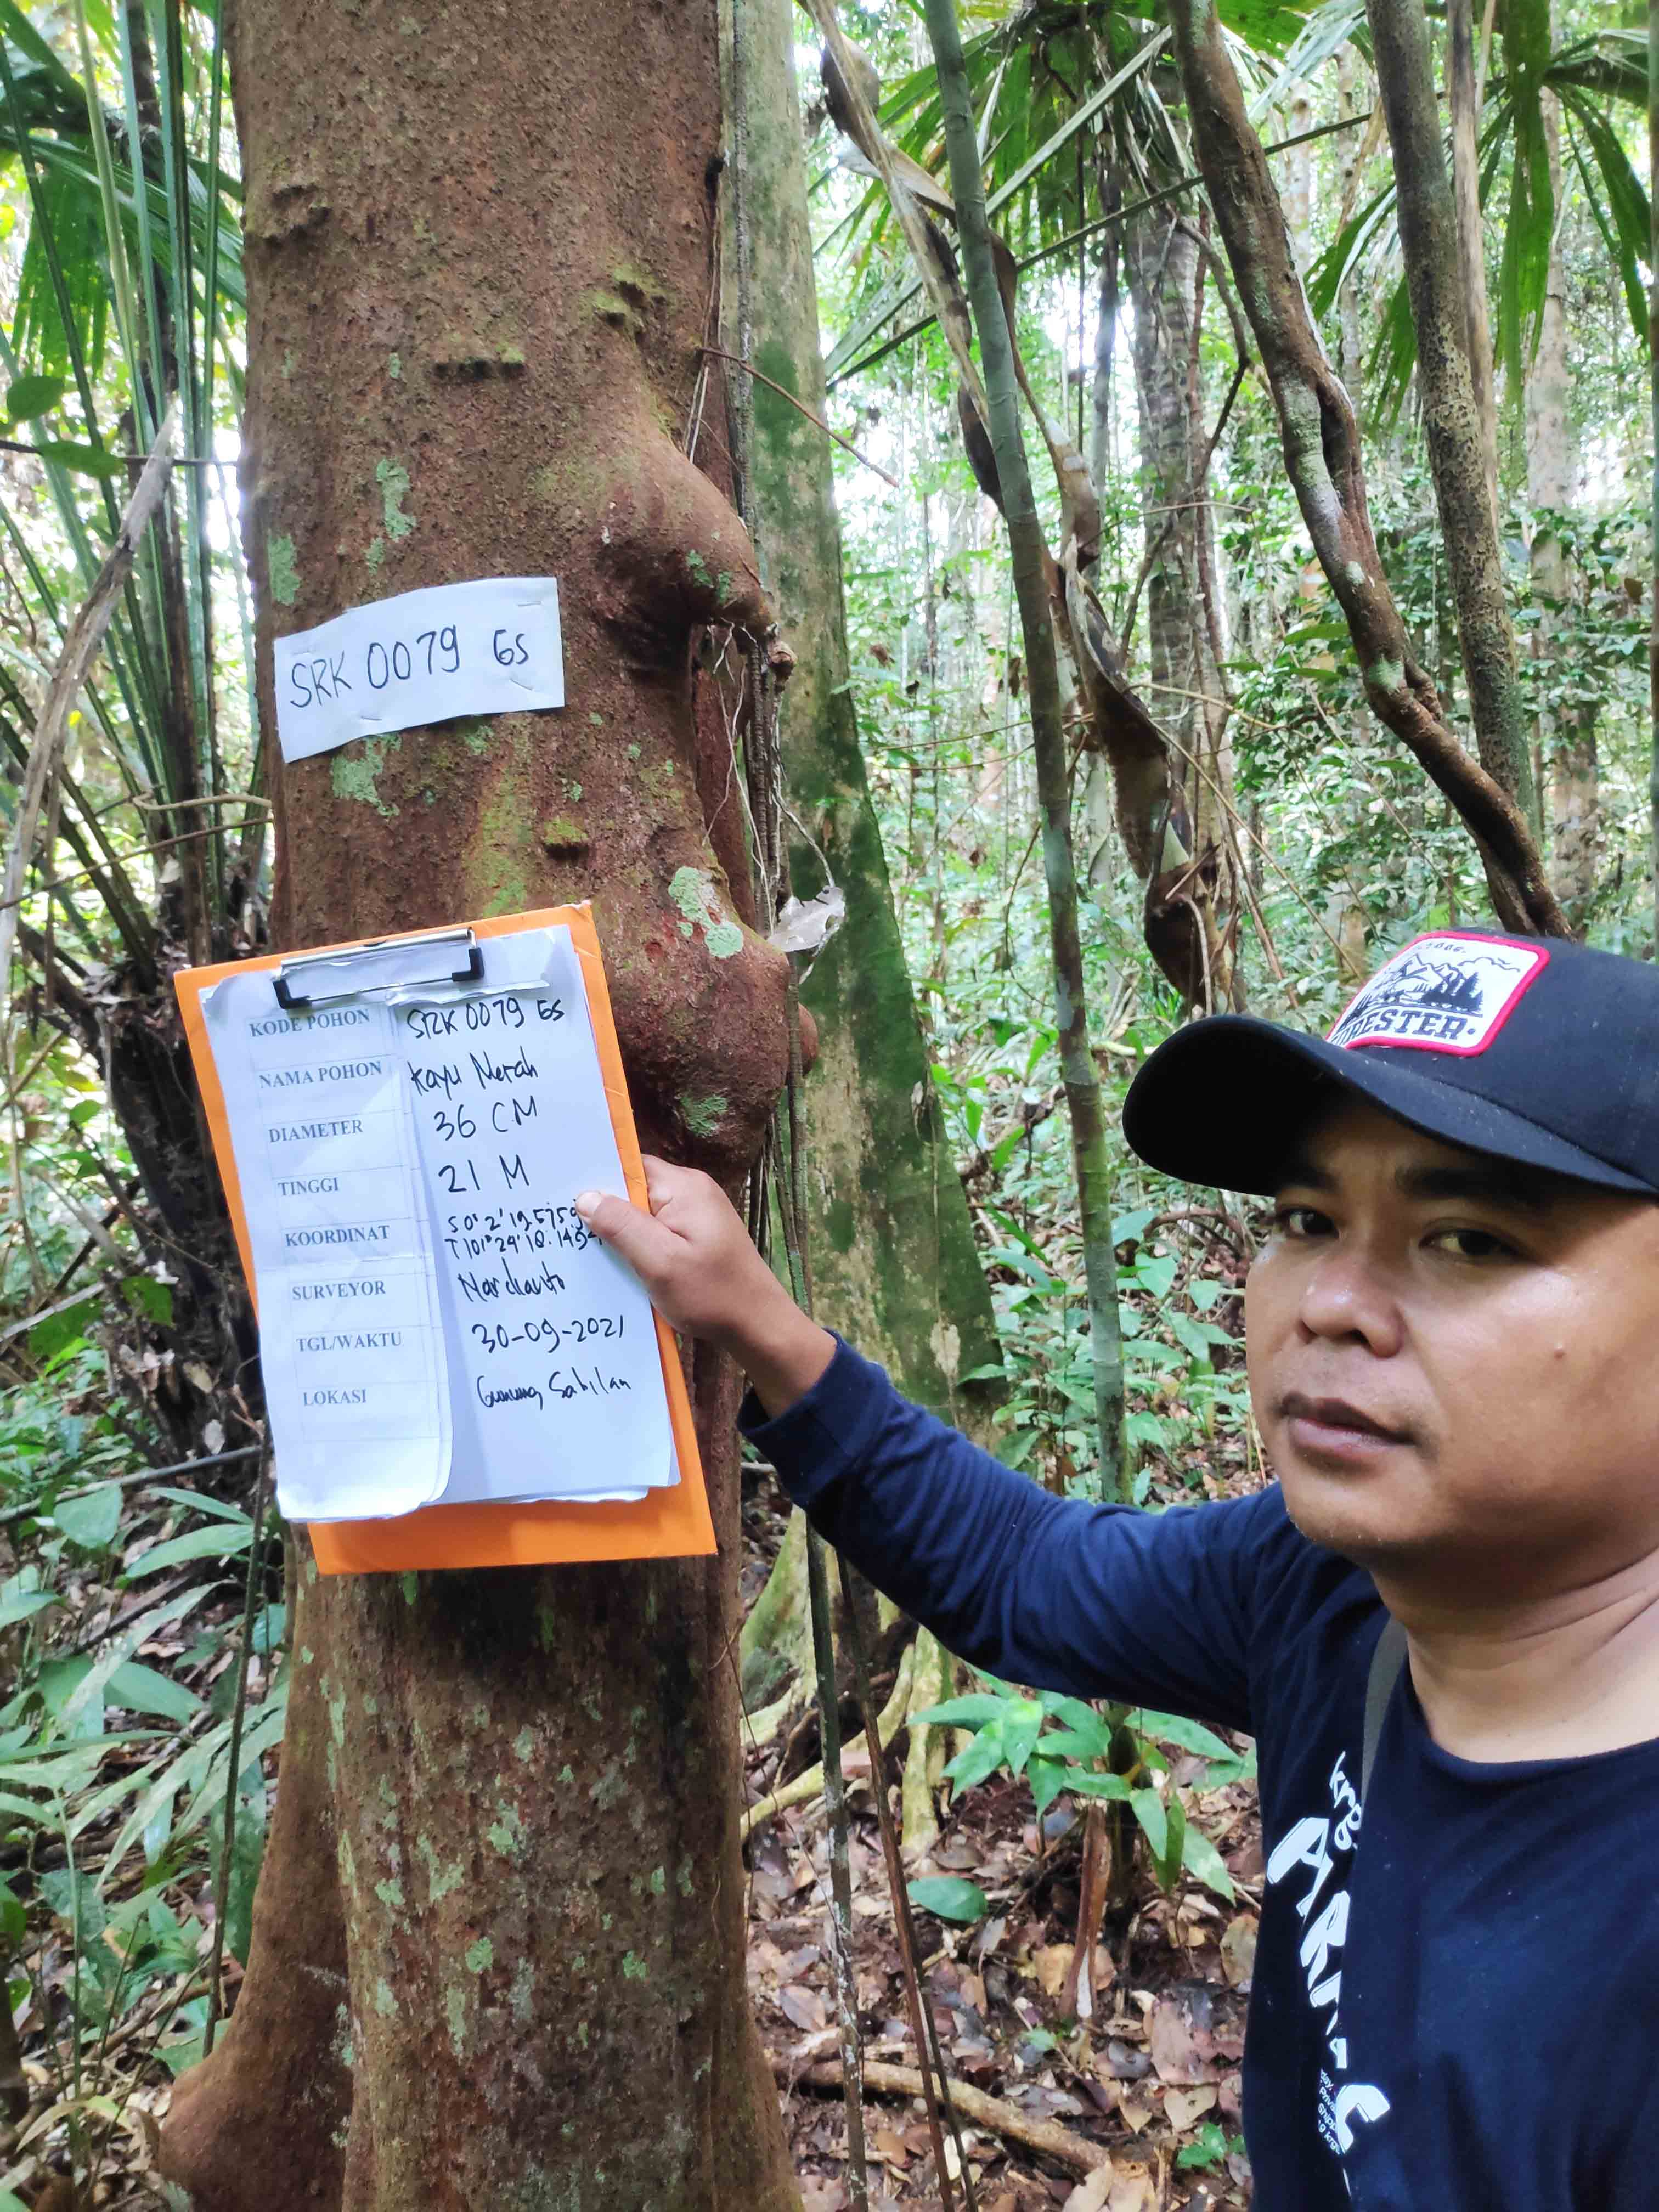 SRK 0079 GS
KODE POHON SRK 0079 GS
NAMA POHON Kayu Merah
DIAMETER 36 CM
TINGGI 21 M
KOORDINAT S 0° 2' 19.5759
T 101° 24' 18.149
SURVEYOR Mardianto
TGL/WAKTU 30-09-2021
LOKASI Gunung Sahilan